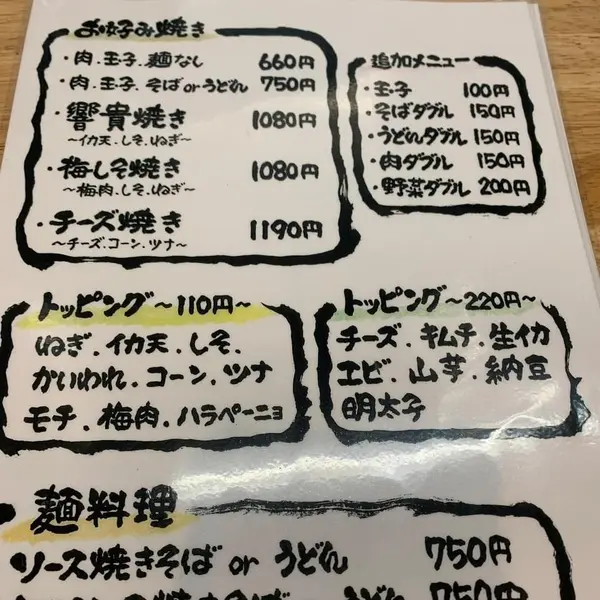 お好み焼き
・肉.玉子.麺なし 660円
・肉.玉子.そばorうどん 750円
・響貴焼き 1080円
〜イカ天.しそ.ねぎ〜
・梅しそ焼き 1080円
〜梅肉.しそ.ねぎ〜
・チーズ焼き 1190円
〜チーズ.コーン.ツナ〜
追加メニュー
・玉子 100円
・そばダブル 150円
・うどんダブル 150円
・肉ダブル 150円
・野菜ダブル 200円
トッピング〜110円〜
ねぎ.イカ天.しそ.
かいわれ.コーン.ツナ
モチ.梅肉.ハラペーニョ
トッピング〜220円〜
チーズ.キムチ.生イカ
エビ.山芋.納豆
明太子
麺料理
ソース焼きそば or うどん 750円
うどん 750円